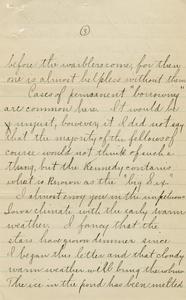 (3)
before the warblers come, for then
one is almost helpless without them
Cases of permanent "borrowing"
are common here. It would be
unjust, however, if I did not say
that the majority of the fellows of
course would not think of such a
thing, but the Kennedy contains
what is known as the "big Six".
I almost envy you in the
Iowa climate with the early warm
weather. I fancy that the
stars have grown dimmer since
I began this letter and that cloudy
warm weather will bring the
The ice in the pond has been melted